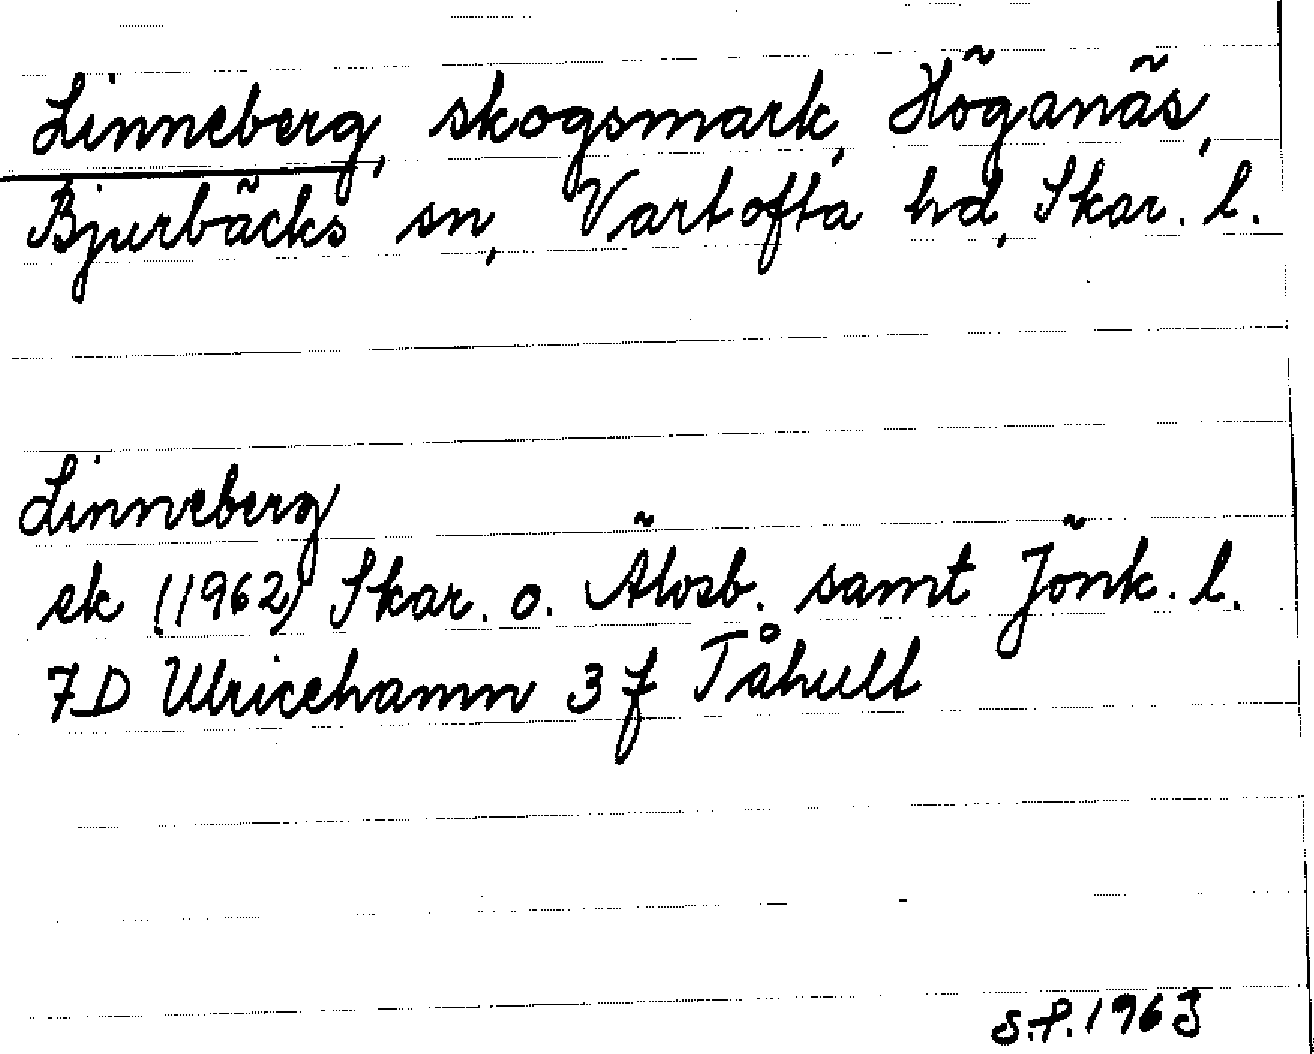 Linneberg, skogsmark, Höganäs,
Bjurbäcks sn, Vartofta hd, Skar. l.
Linneberg
ek (1962) Skar. o. Älvsb. samt Jönk. l.
7D Ulricehamn 3f Tåhult
S.P. 1963